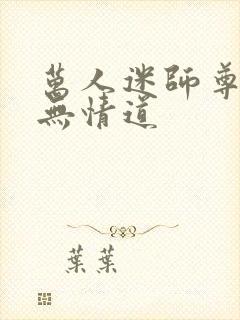 萬人迷師尊
無情道
葉葉